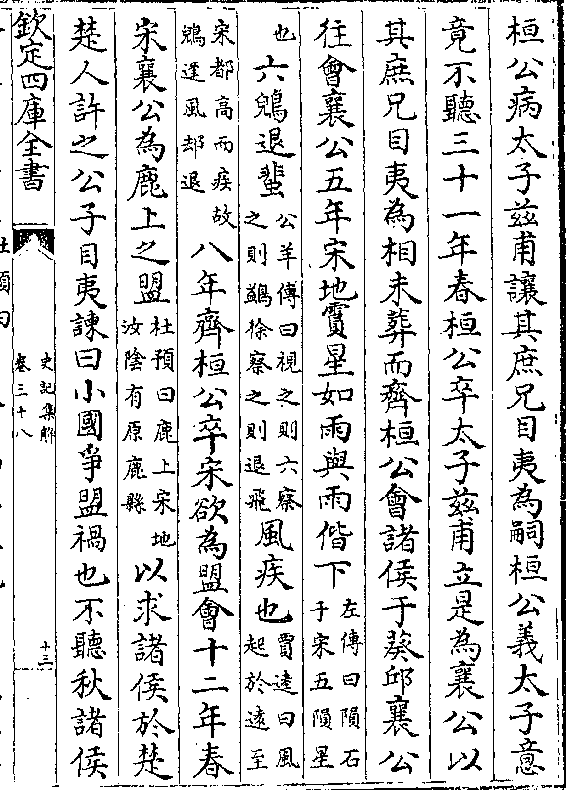 桓公病太子兹甫讓其庶兄目夷為嗣桓公義太子意
竟不聽三十一年春桓公卒太子兹甫立是為襄公以
其庶兄目夷為相未葬而齊桓公會諸侯于葵邱襄公
往會襄公五年宋地霣星如雨與雨偕下左傳曰隕石于宋五隕星
也六鶂退蜚公羊傳曰視之則六察之則鷁徐察之則退飛風疾也賈逵曰風起於逺至
宋都高而疾故鶂逢風却退八年齊桓公卒宋欲為盟會十二年春
宋襄公為鹿上之盟杜預曰鹿上宋地汝隂有原鹿縣以求諸侯於楚
楚人許之公子目夷諫曰小國爭盟禍也不聽秋諸侯
欽定四庫全書
史記集解
卷三十八
十三